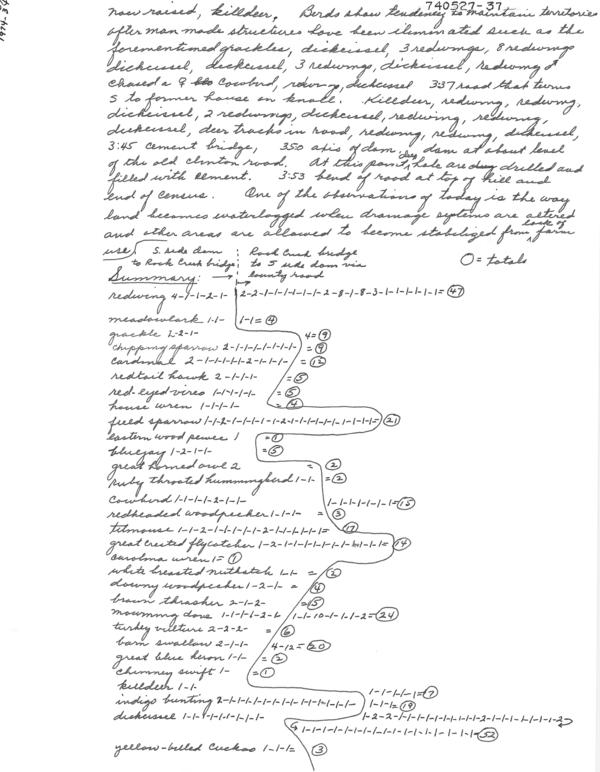 740527-37
now raised, killdeer. Birds show tendency to maintain territories
after man made structures have been iluminated such as the
forementioned grackles, dickcissel, 3 redwings, 8 redwings
dickcissel, dickcissel, 3 redwings, dickcissel, redwing ♂
chased a ♀ cowbird, redwing, dickcissel 337 road that turns
S to former house on knoll. Killdeer, redwing, redwing,
dickcissel, 2 redwings, dickcissel, redwing, redwing,
dickcissel, deer tracks in road, redwing, redwing, dickcissel,
3:45 cement bridge, 350 axis of dam, dam at about level
of the old clinton road. At this point, hole are drilled and
filled with cement. 3:53 bend of road at top of hill and
end of census. One of the observations of today is the way
land becomes waterlogged when drainage systems are altered
and other areas are allowed to become stabilized from lack of farm
use. S. side dam to Rock Creek bridge Rock Creek bridge to S side dam via county road O = totals
Summary:
redwing 4-1-1-2-1- 2-2-1-1-1-1-1-1-2-8-1-8-3-1-1-1-1-1-1= 47
meadowlark 1-1- 1-1= 4
grackle 1-2-1- 4= 9
chipping sparrow 2-1-1-1-1-1-1-1- = 9
cardinal 2-1-1-1-1-2-1-1-1- = 12
redtail hawk 2-1-1-1- = 5
red-eyed vireo 1-1-1-1-1- = 5
house wren 1-1-1-1- = 4
field sparrow 1-1-2-1-1-1-1-1-2-1-1-1-1-1-1-1-1-1= 21
eastern wood pewee 1 = 1
bluejay 1-2-1-1- = 5
great horned owl 2 = 2
ruby throated hummingbird 1-1- = 2
cowbird 1-1-1-1-2-1-1- 1-1-1-1-1-1-1= 15
redheaded woodpecker 1-1-1- = 3
titmouse 1-1-2-1-1-1-1-1-2-1-1-1-1-1= 17
great crested flycatcher 1-2-1-1-1-1-1-1-1-1-1-1-1= 14
carolina wren 1= 1
white breasted nuthatch 1-1- = 2
downy woodpecker 1-2-1- = 4
brown thrasher 2-1-2- = 5
mourning dove 1-1-1-1-2-1- 1-1-10-1-1-1-2= 24
turkey vulture 2-2-2- = 6
barn swallow 2-1-1- 4-12= 20
great blue heron 1-1- = 2
chimney swift 1- = 1
killdeer 1-1- 1-1-1-1-1= 7
indigo bunting 2-1-1-1-1-1-1-1-1-1-1-1-1-1- 1-1-1= 19
dickcissel 1-1-1-1-1-1-1-1- 1-2-2-1-1-1-1-1-1-1-1-1-2-1-1-1-1-1-1-2
1-1-1-1-1-1-1-1-1-1-1-1-1-1-1= 52
yellow-billed cuckoo 1-1-1= 3